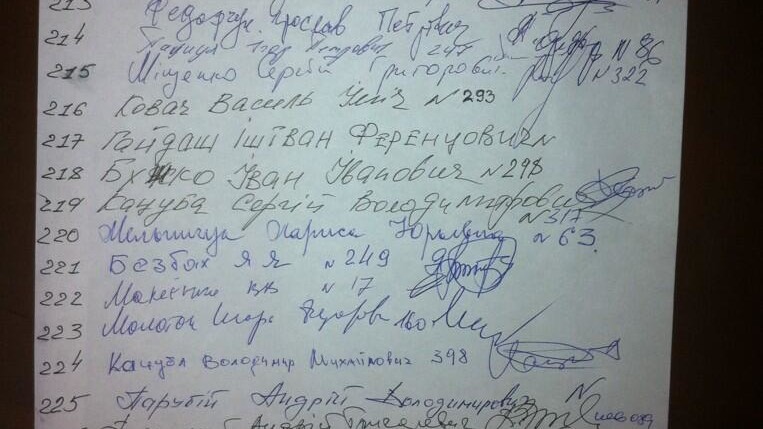 213 Федорчук Ярослав Петрович
214 Петрович 247 N 86
215 Міщенко Сергій Григорович N 322
216 Ковач Василь N 293
217 Гайдаш Іштван Ференцович N
218 Іван Іванович N 298
219 Кацуба Сергій Володимирович N 317
220 Мельничук Лариса Юріївна N 63.
221 Безбах Я Я N 249
222 N 17
223 Молоток Ігор Федорович 160
224 Кацуба Володимир Михайлович 398
225 Парубій Андрій Володимирович N
Андрій